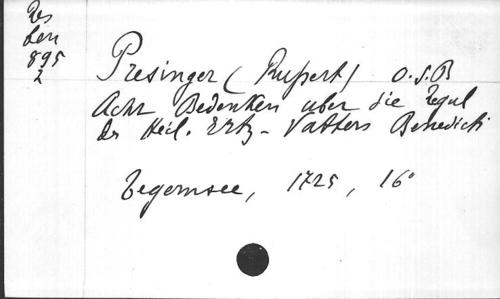 Res
Ben
895
2
Presinger (Rupert) O.S.B
Acht Bedenken uber die Regul
des Heil. Ertz-Vatters Benedicti
Tegernsee, 1725, 16°